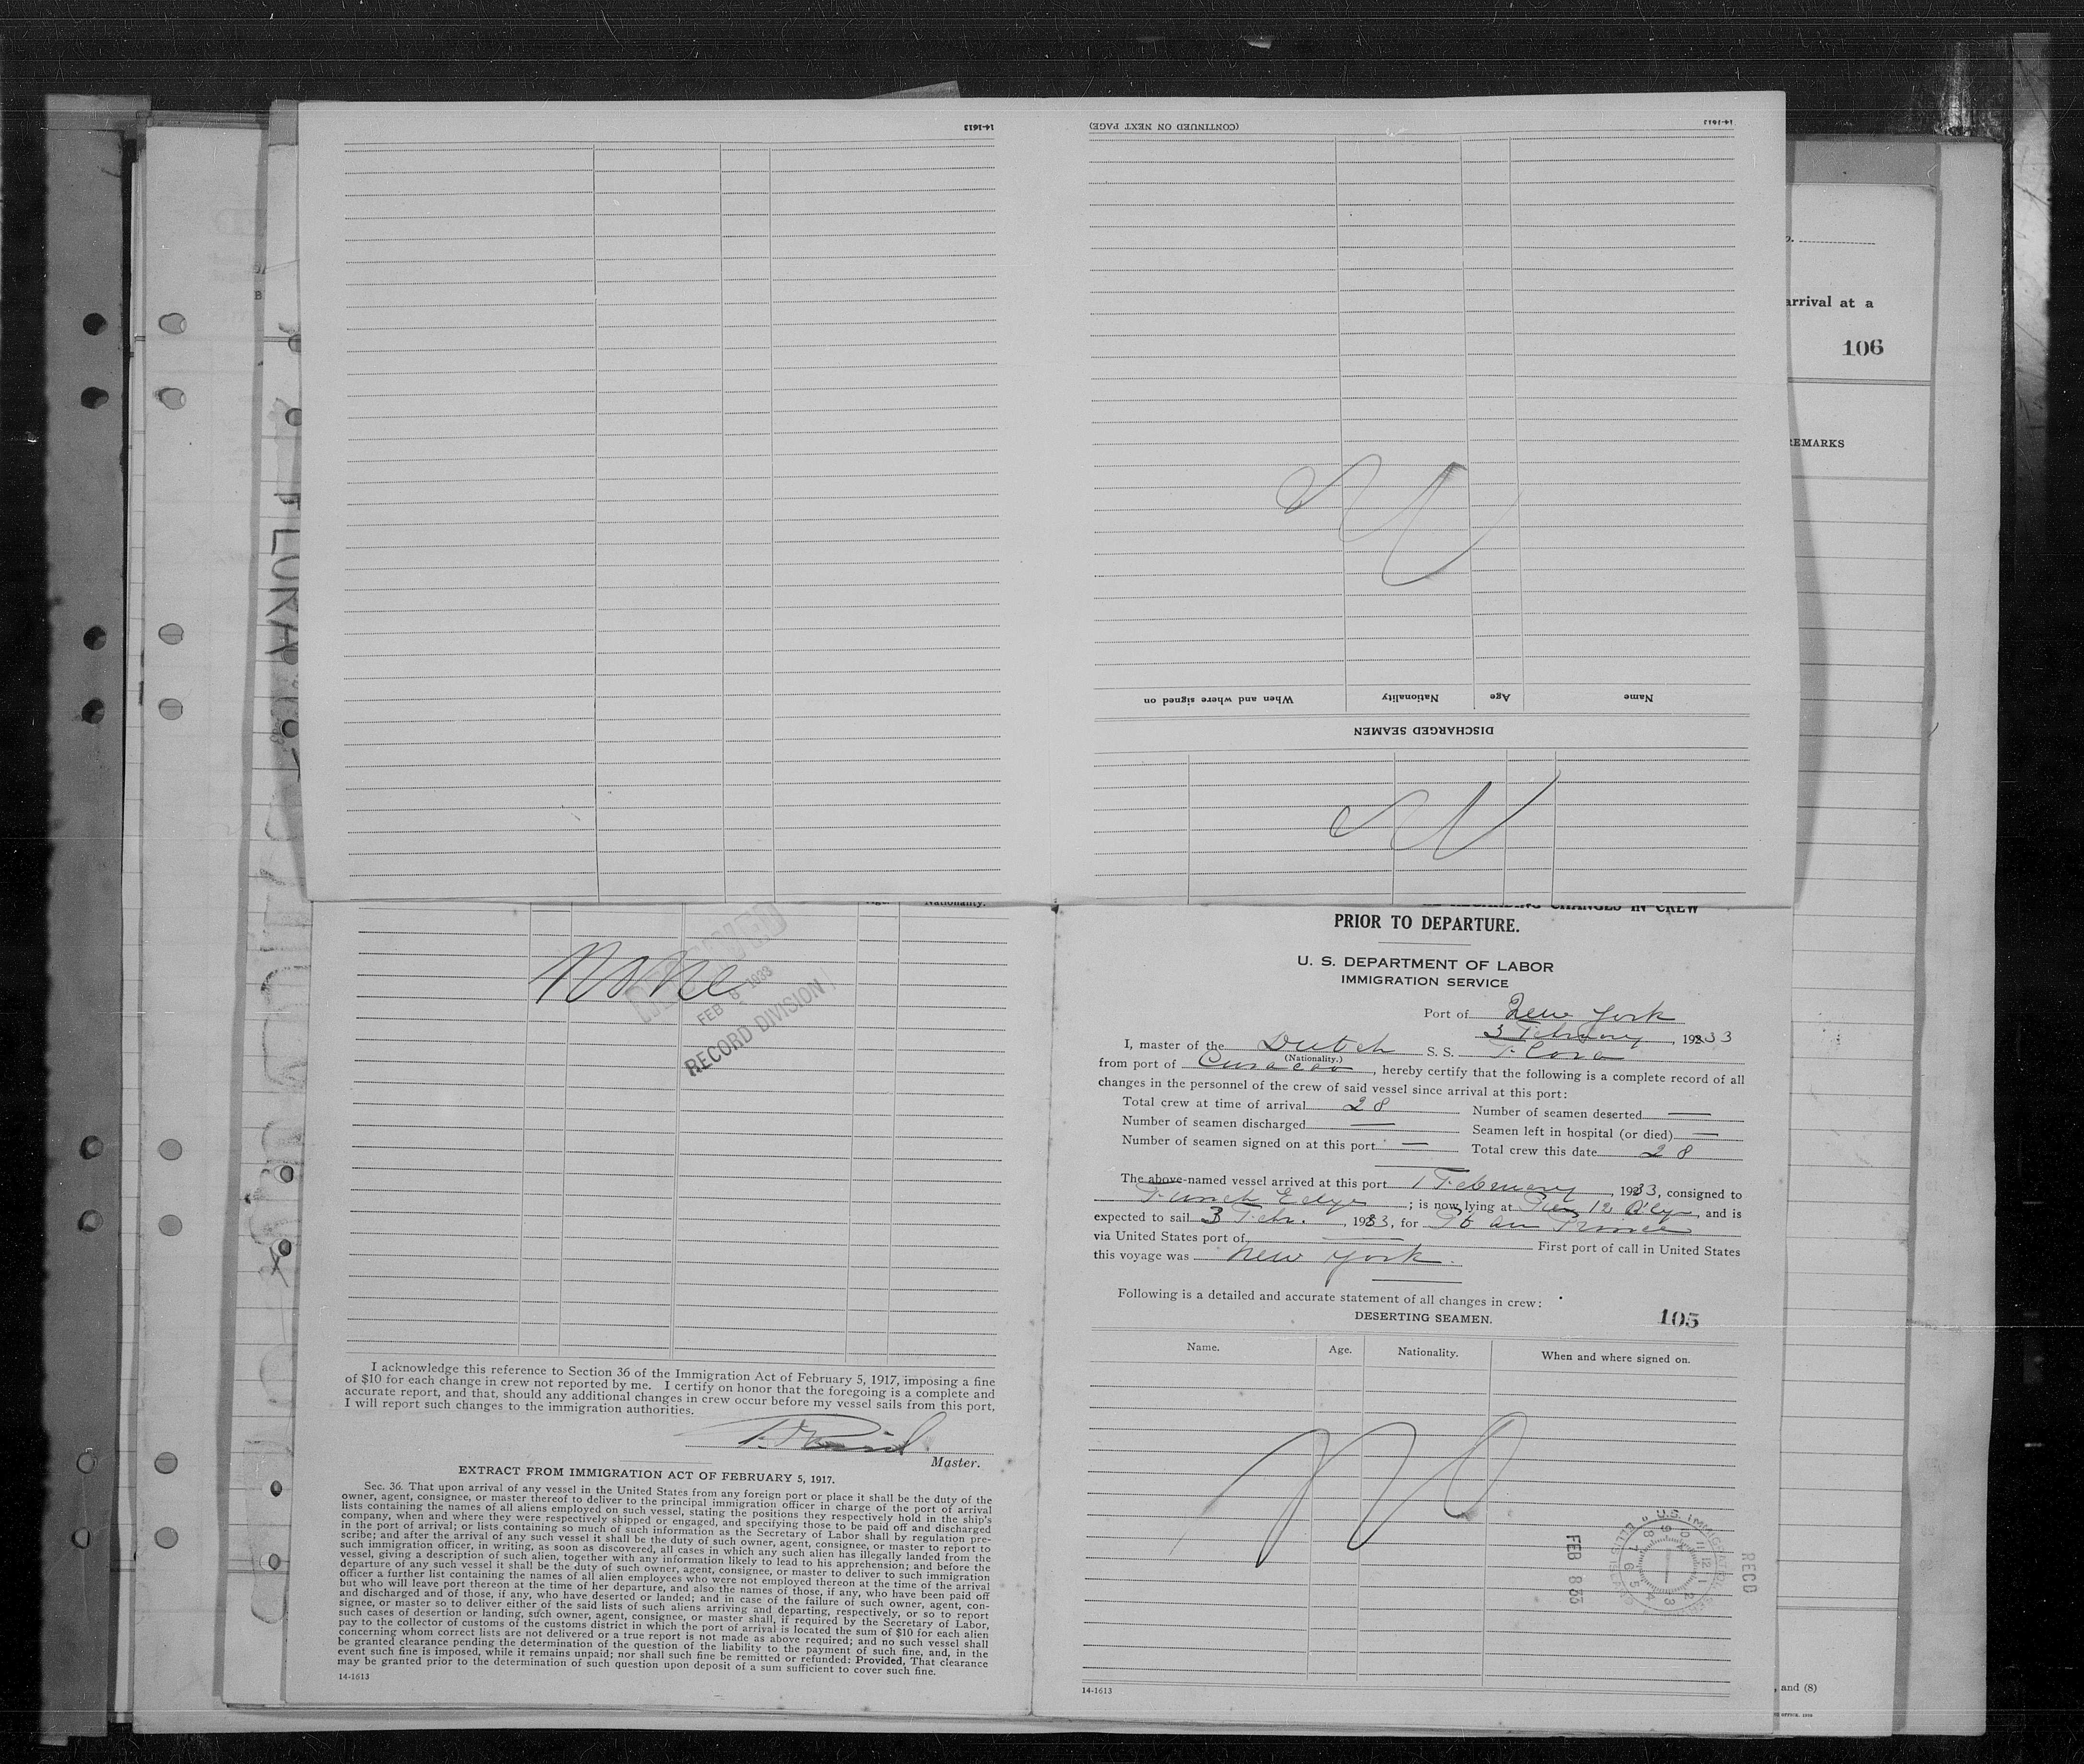 14-1613
(CONTINUED ON NEXT PAGE)
14-1613
When and where signed on
Nationality
Age
Name
DISCHARGED SEAMEN
FLORA
arrival at a
106
REMARKS
, and (8)
Nationality.
None
FEB 8 1933
RECORD DIVISION
I acknowledge this reference to Section 36 of the Immigration Act of February 5, 1917, imposing a fine
of $10 for each change in crew not reported by me. I certify on honor that the foregoing is a complete and
accurate report, and that, should any additional changes in crew occur before my vessel sails from this port,
I will report such changes to the immigration authorities.
Master.
EXTRACT FROM IMMIGRATION ACT OF FEBRUARY 5, 1917.
Sec. 36. That upon arrival of any vessel in the United States from any foreign port or place it shall be the duty of the
owner, agent, consignee, or master thereof to deliver to the principal immigration officer in charge of the port of arrival
lists containing the names of all aliens employed on such vessel, stating the positions they respectively hold in the ship's
company, when and where they were respectively shipped or engaged, and specifying those to be paid off and discharged
in the port of arrival; or lists containing so much of such information as the Secretary of Labor shall by regulation pre-
scribe; and after the arrival of any such vessel it shall be the duty of such owner, agent, consignee, or master to report to
such immigration officer, in writing, as soon as discovered, all cases in which any such alien has illegally landed from the
vessel, giving a description of such alien, together with any information likely to lead to his apprehension; and before the
departure of any such vessel it shall be the duty of such owner, agent, consignee, or master to deliver to such immigration
officer a further list containing the names of all alien employees who were not employed thereon at the time of the arrival
but who will leave port thereon at the time of her departure, and also the names of those, if any, who have been paid off
and discharged and of those, if any, who have deserted or landed; and in case of the failure of such owner, agent, con-
signee, or master so to deliver either of the said lists of such aliens arriving and departing, respectively, or so to report
such cases of desertion or landing, such owner, agent, consignee, or master shall, if required by the Secretary of Labor,
pay to the collector of customs of the customs district in which the port of arrival is located the sum of $10 for each alien
concerning whom correct lists are not delivered or a true report is not made as above required; and no such vessel shall
be granted clearance pending the determination of the question of the liability to the payment of such fine, and, in the
event such fine is imposed, while it remains unpaid; nor shall such fine be remitted or refunded: Provided, That clearance
may be granted prior to the determination of such question upon deposit of a sum sufficient to cover such fine.
14-1613
CHANGES IN CREW
PRIOR TO DEPARTURE.
U. S. DEPARTMENT OF LABOR
IMMIGRATION SERVICE
Port of New York
3 February, 1933
I, master of the Dutch S. S. Flora
(Nationality.)
from port of Curacao, hereby certify that the following is a complete record of all
changes in the personnel of the crew of said vessel since arrival at this port:
Total crew at time of arrival 28 Number of seamen deserted —
Number of seamen discharged — Seamen left in hospital (or died) —
Number of seamen signed on at this port — Total crew this date 28
The above-named vessel arrived at this port 1 February, 1933, consigned to
Funch Edye ; is now lying at Pier 12 B'lyn, and is
expected to sail 3 Febr., 1933, for Pt au Prince
via United States port of — First port of call in United States
this voyage was New York.
Following is a detailed and accurate statement of all changes in crew:
DESERTING SEAMEN.
105
Name. Age. Nationality. When and where signed on.
FEB 8 33
RECD
14-1613